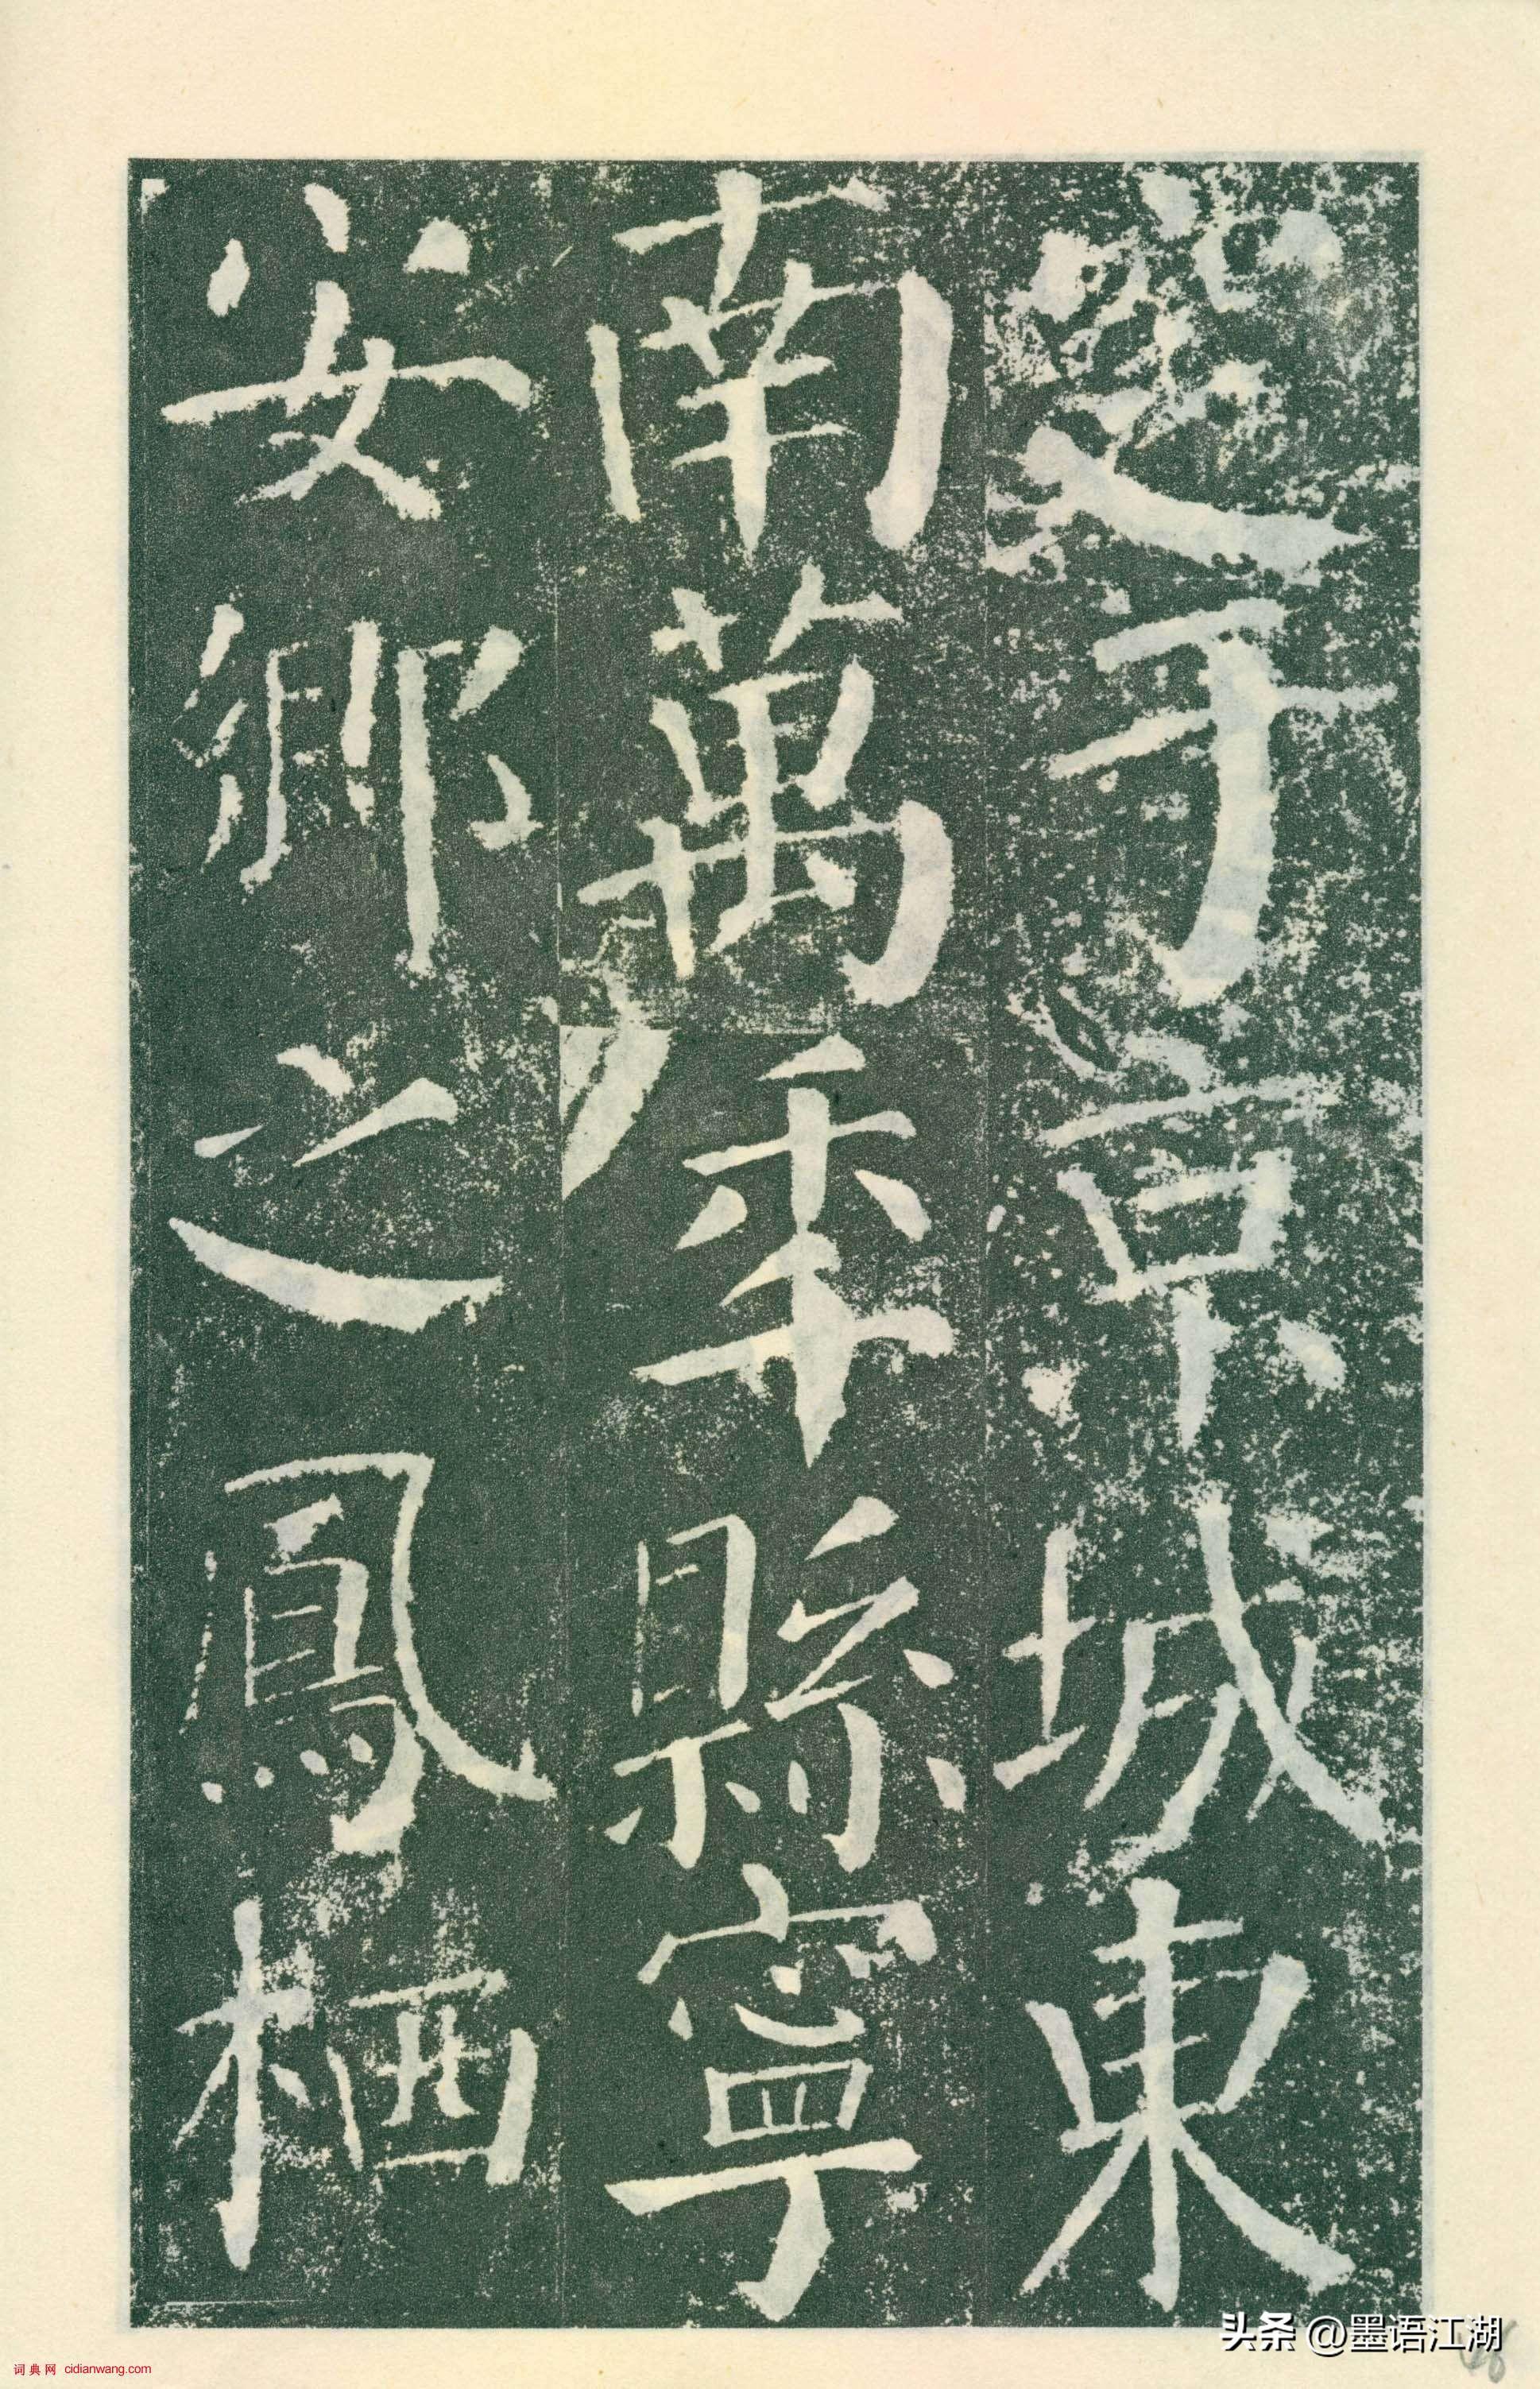 于京城東
南萬秊縣寧
安鄉之鳳栖
头条 @墨语江湖
词典网 cidianwang.com